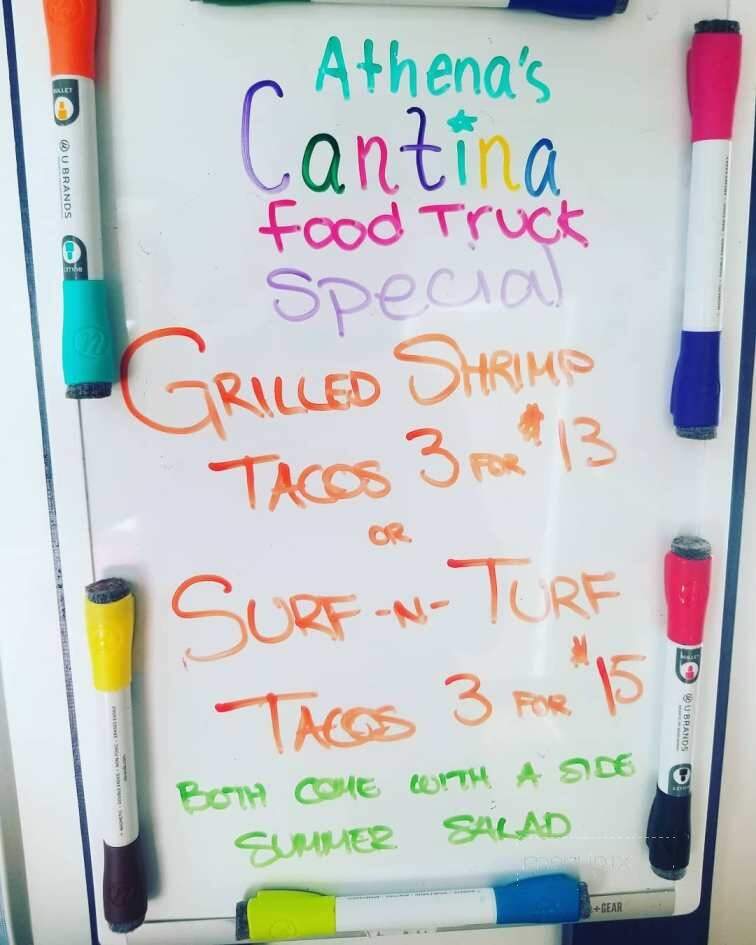 Athena's
Cantina
Food Truck
Special
GRILLED SHRIMP
TACOS 3 FOR #13
OR
SURF -N- TURF
TACOS 3 FOR #15
BOTH COME WITH A SIDE
SUMMER SALAD
U BRANDS
BULLET
U BRANDS
+GEAR